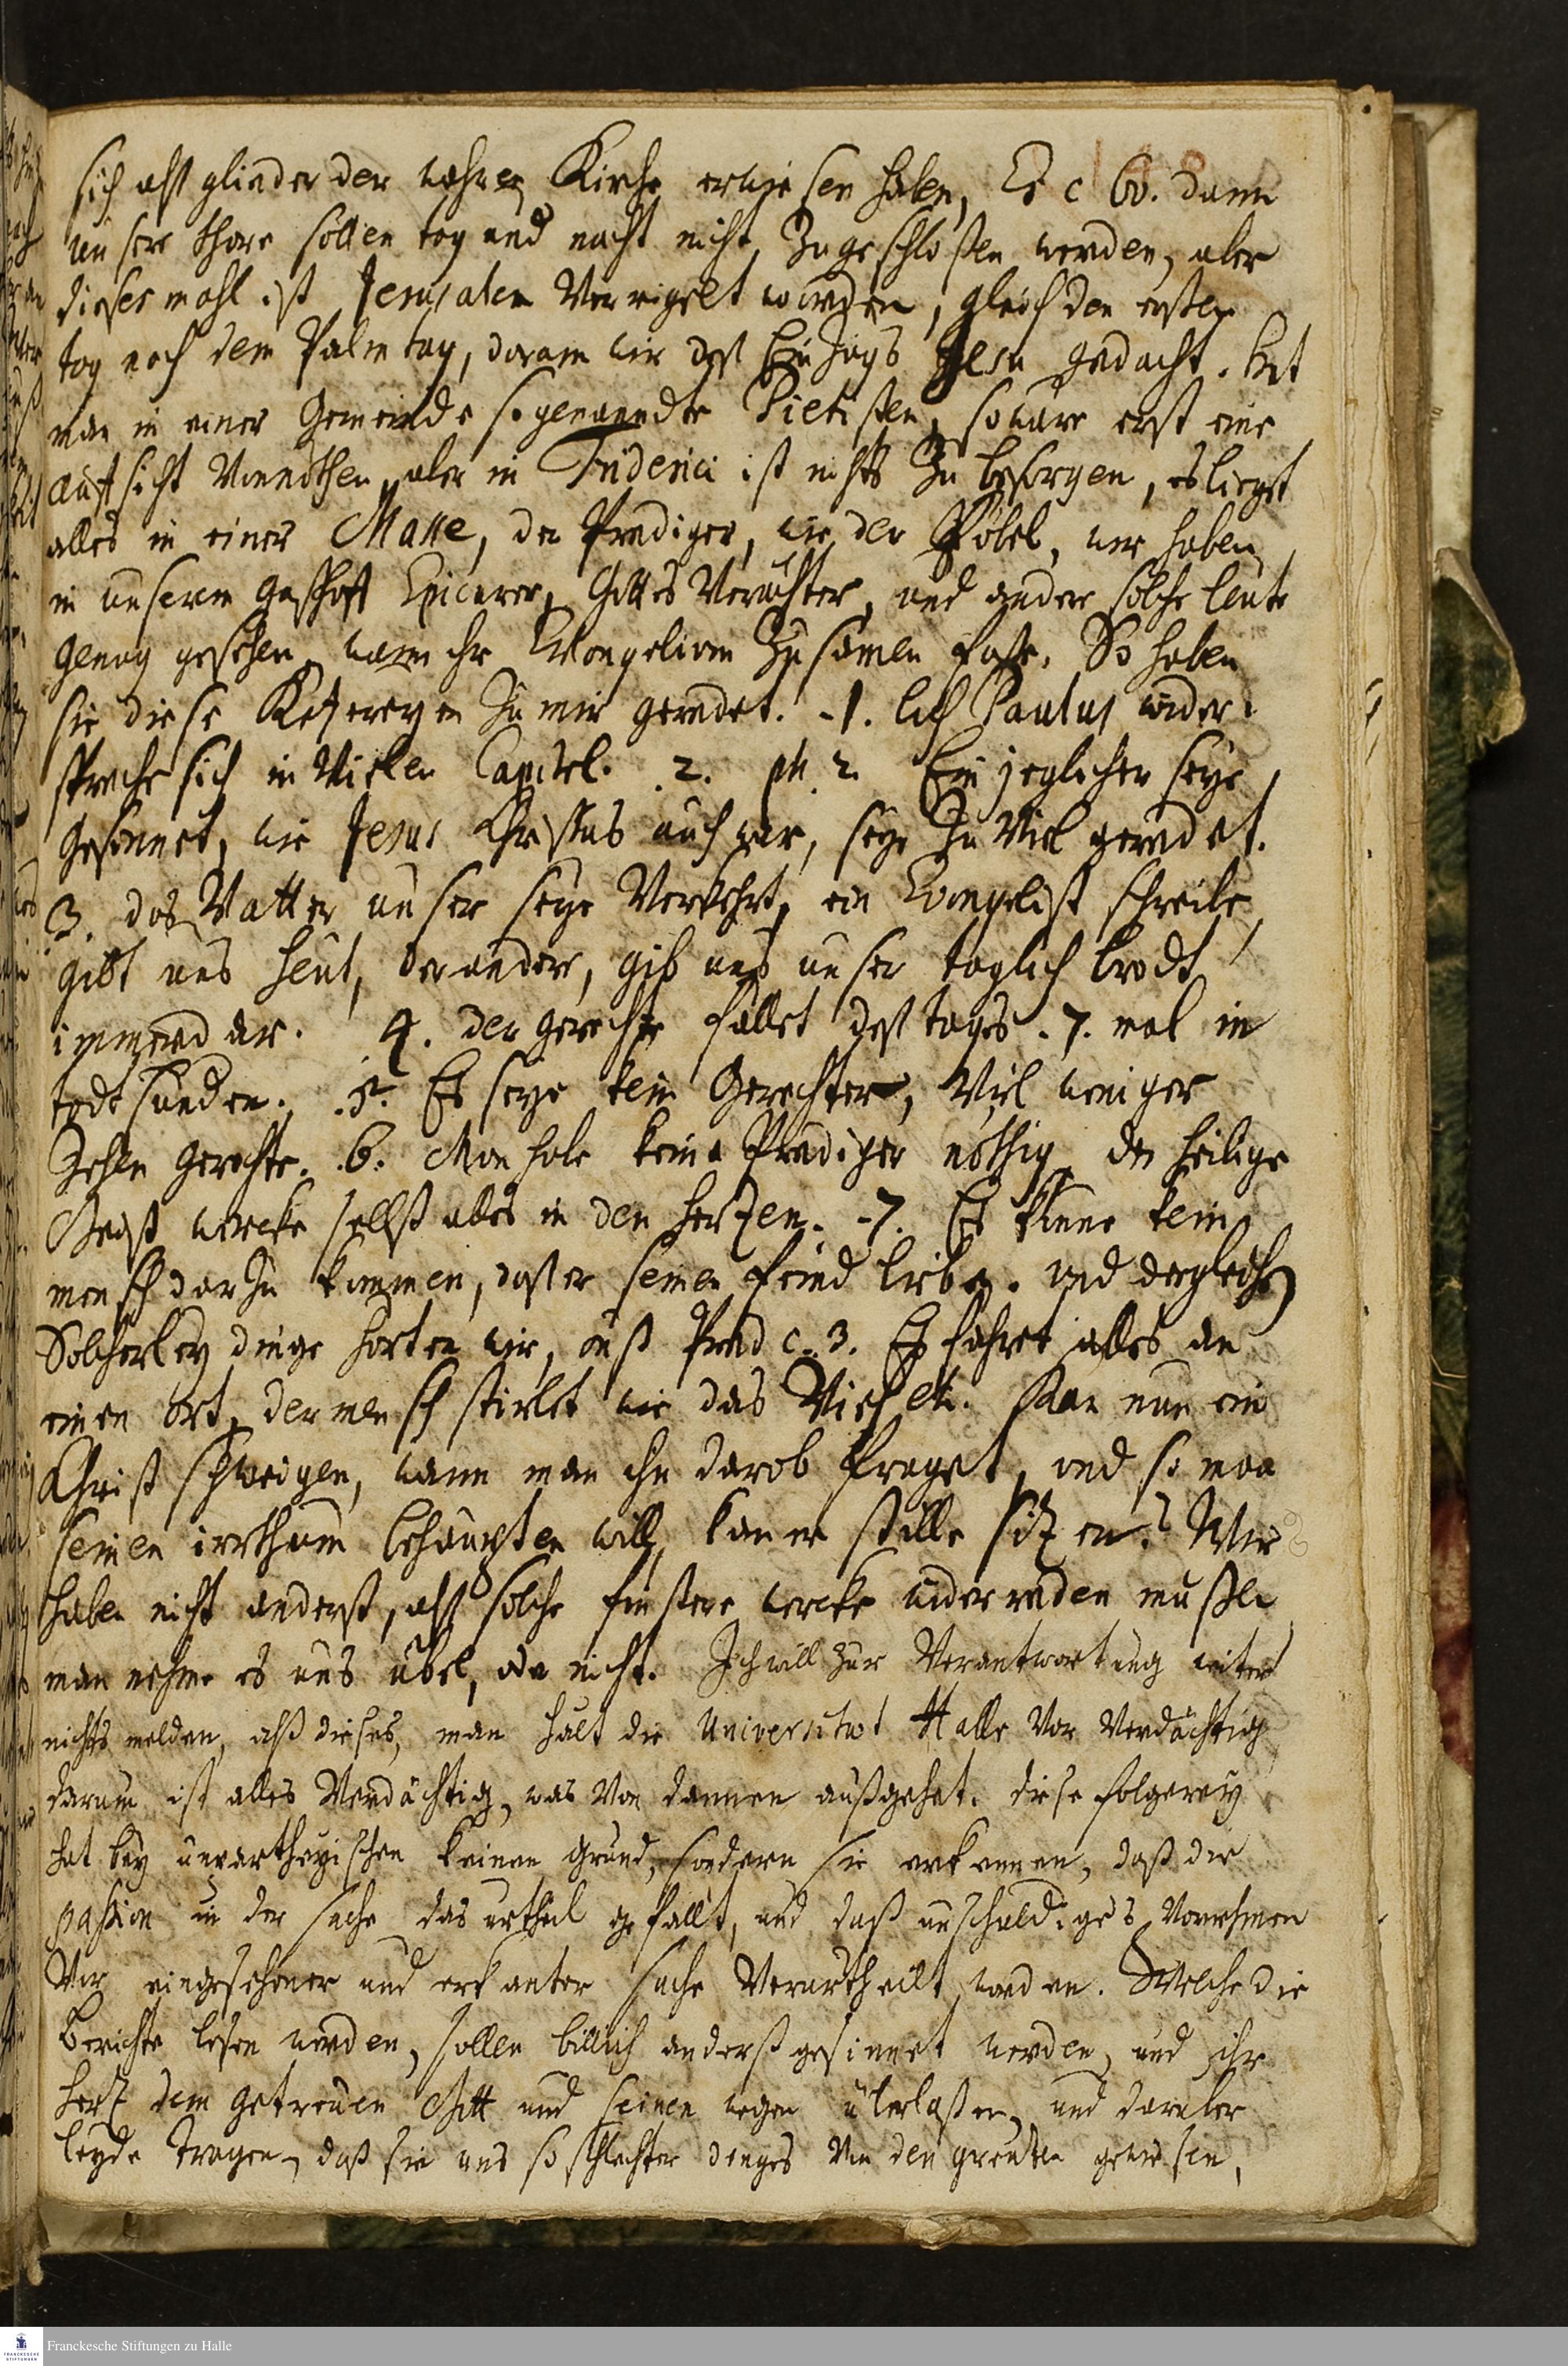 sich alß glieder der wahren Kirche erwiesen haben, Es c 60. dann
unsere thore sollen tag und nacht nicht zugeschloßen werden, aber
diesesmahl ist Jerusalem Verrigelt worden, gleich den ersten
tag nach dem Palmtag, daran wir deß Einzugs Jesu gedacht. hat
man in einer Gemeinde sogenanndte Pietisten, so ware erst eine
aufsicht Vonnöthen, aber in Friderici ist nichts zu besorgen, es liegt
alles in einer Masse, der Prediger, wie der Pöbel, wir haben
in unserem Gasthoff Epicurer, Gottes Verächter, und andere solche leute
genug gesehen, wann ihr Evangelium zusamen fast. So haben
sie diese Ketzereyen zu mir geredet. -1. Paulus wider=
spreche sich in Vielen Capitel. 2. ph. 2. Ein jeglicher seye
gesinnet, wie Jesus Christus auch war, seye zu Viel geredet.
3. das Vatter unser seye Verkehrt, ein Evangelist schreibe,
gibt uns heut, der andere, gib uns unser taglich brodt
immerdar. 4. der gerechte fallet deß tages .7. mal in
todtsünden. .5. Es seye kein Gerechter, Viel weniger
Zehen Gerechte. .6. Man habe keine Prediger nöthig, der heilige
Geist wercke selbst alles in den hertzen. -7. Es könne kein
mensch darzu kommen, daß er seinen feind liebe. und dergleichen
Solcherley dinge horten wir, auß Pred c. 3. Es fahret alles an
einen ort, der mensch stirbet wie das Vieh etc. Kan nun ein
Christ schweigen, wann man ihn darob fraget, und so man
seinen irrthum behaupten will, kan er stille sitzen? Wir
haben nicht anderst, alß solche finstere wercke widerreden mußen
man nehme es uns übel, oder nicht. Ich will zur Verantwortung weiter
nichts melden, alß dieses, man halt die Universitaet Halle vor Verdächtig
darum ist alles Verdächtig, was von dannen außgehet. diese folgerey
hat bey unpartheyischen keinen grund, sondern sie erkennen, daß die
passion in der sache das urtheil gefällt, und daß unschuldiges Vornehmen
Vor eingesehener und erkanter sache Verurtheilt worden. Welche die
Berichte lesen werden, sollen billich anderß gesinnet werden, und ihr
hertz dem getreuen Gott und seinen wegen überlaßen, und daruber
leyde tragen, daß sie uns so schlechter dinges Von den grentzen gewiesen,
Franckesche Stiftungen zu Halle